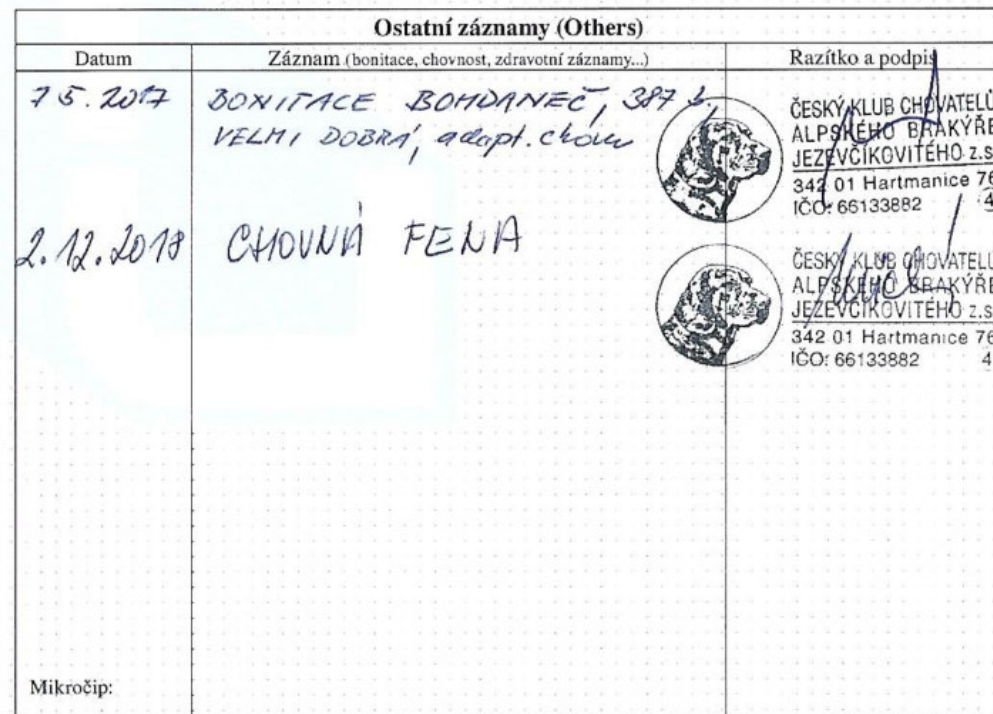 Ostatní záznamy (Others)
Datum Záznam (bonitace, chovnost, zdravotní záznamy...) Razítko a podpis
7 5. 2017 BONITACE BOHDANEČ, 387 b,
VELMI DOBRÁ, adapt. chovu
ČESKÝ KLUB CHOVATELŮ
ALPSKÉHO BRAKÝŘE
JEZEVČÍKOVITÉHO z.s
342 01 Hartmanice 76
IČO: 66133882 4
2.12.2018 CHOVNÁ FENA
ČESKÝ KLUB CHOVATELŮ
ALPSKÉHO BRAKÝŘE
JEZEVČÍKOVITÉHO z.s
342 01 Hartmanice 76
IČO: 66133882 4
Mikročip: